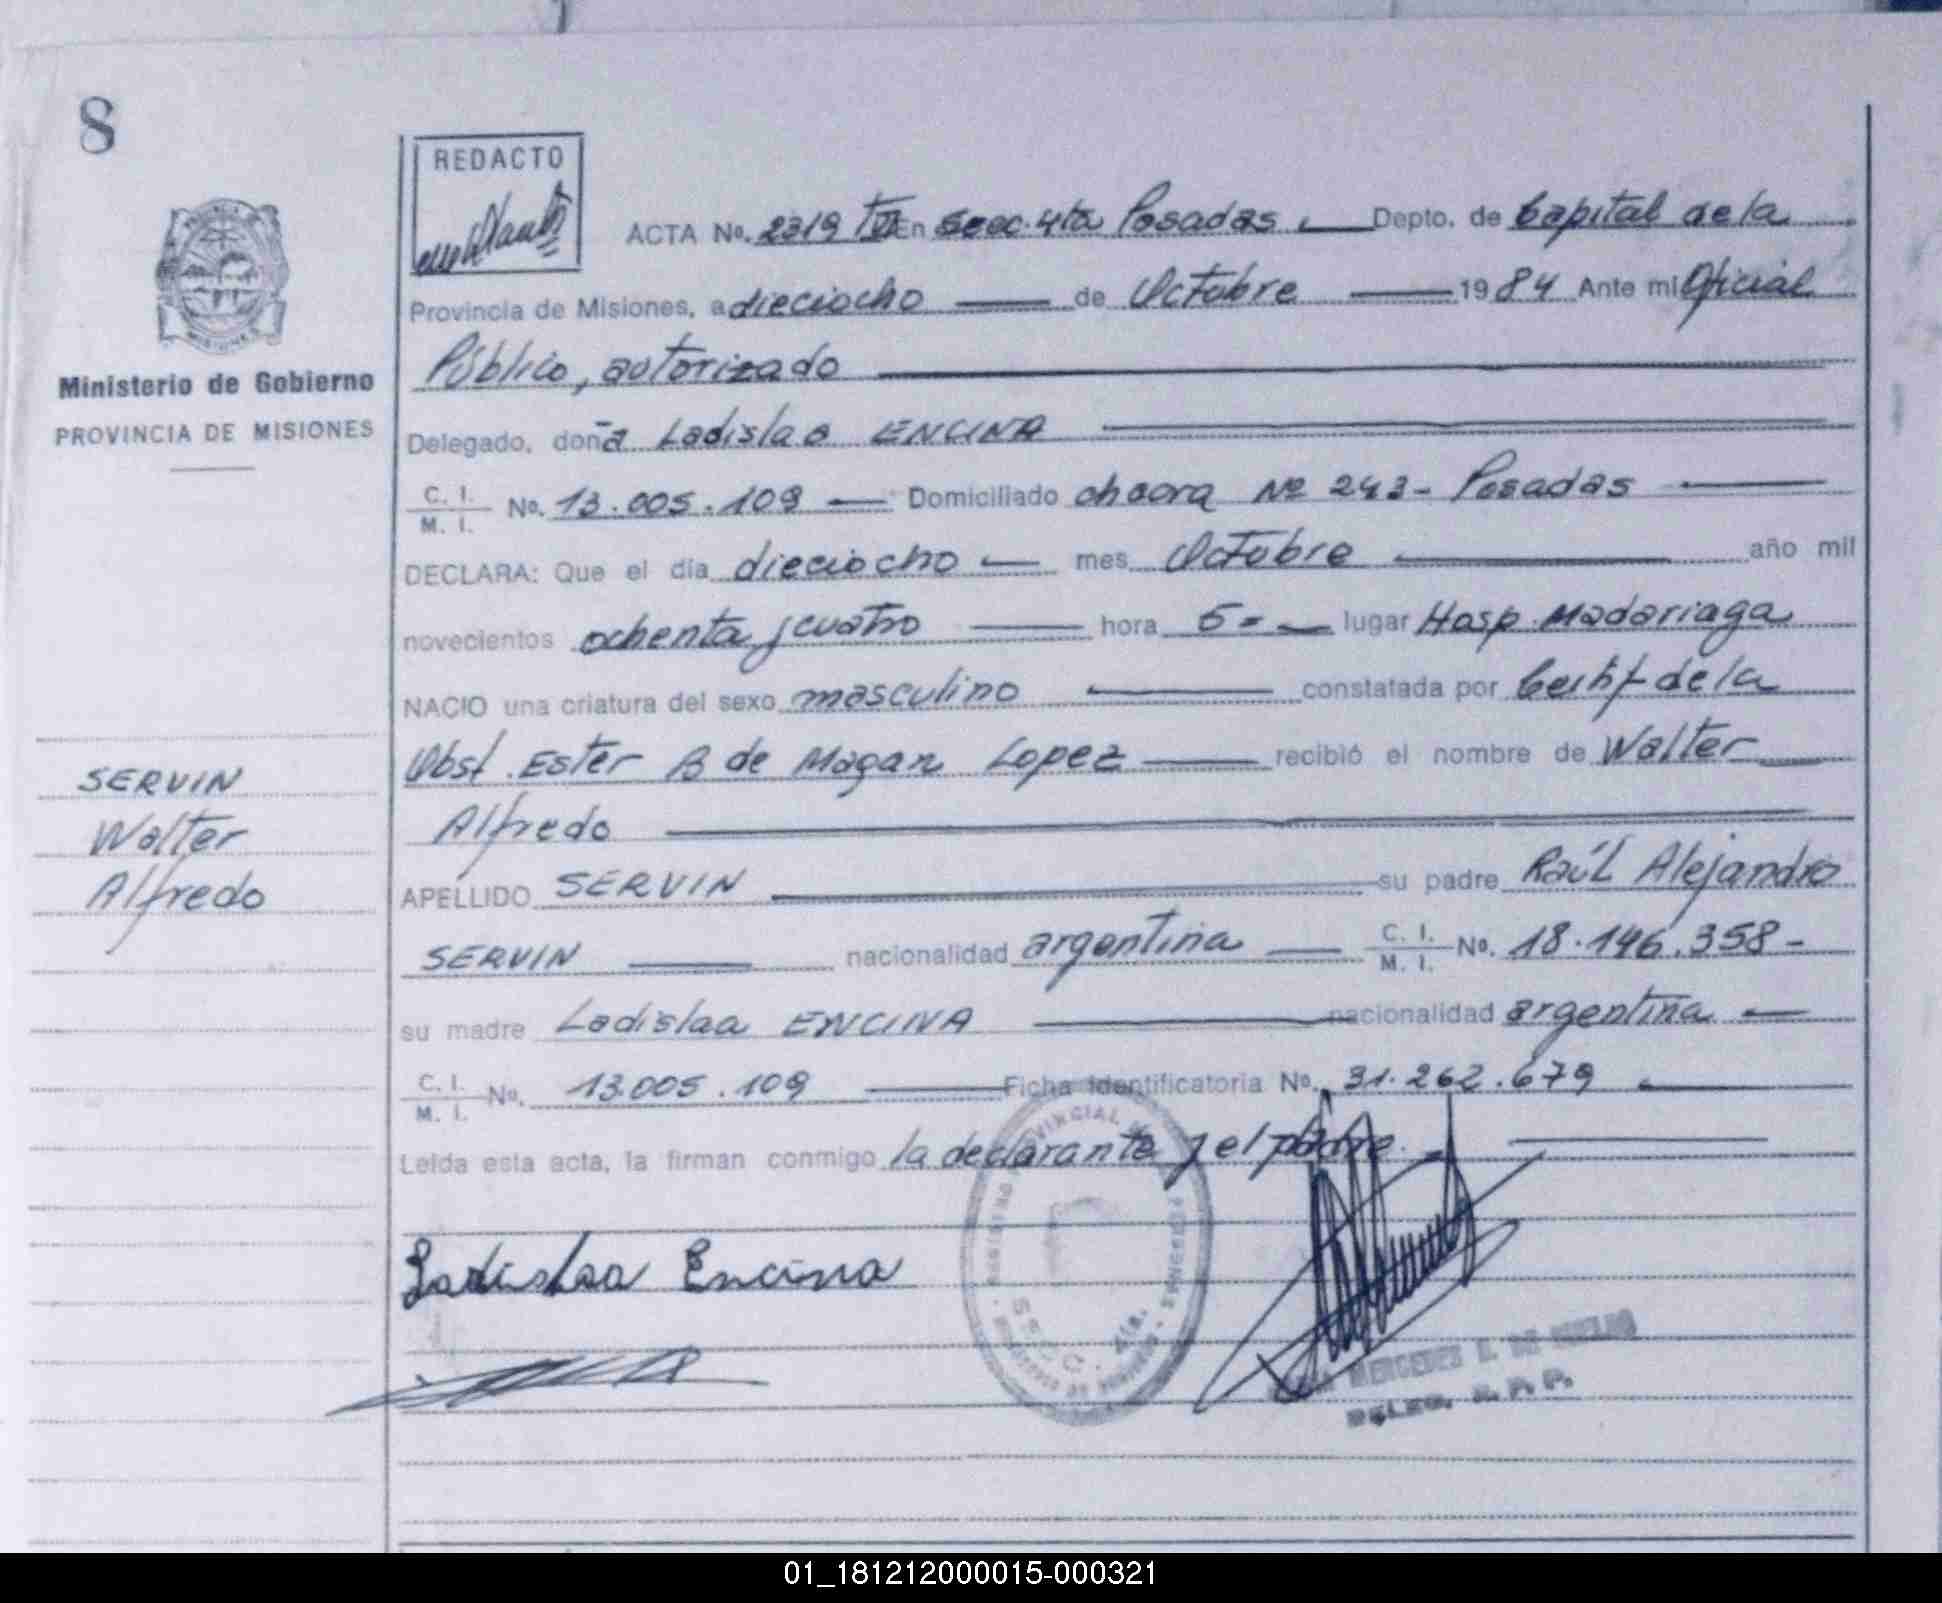 8
REDACTO
ACTA No. 2319 En Secc. 4ta Posadas Depto. de Capital de la
Provincia de Misiones, a dieciocho de Octubre 1984 Ante mi Oficial
Público, autorizado
Ministerio de Gobierno
PROVINCIA DE MISIONES
Delegado, doña Ladislaa ENCINA
C. I. M. I. No. 13.005.109 Domiciliado chacra Nº 243 - Posadas
DECLARA: Que el día dieciocho mes Octubre año mil
novecientos ochenta y cuatro hora 5= lugar Hosp. Madariaga
NACIO una criatura del sexo masculino constatada por Certif de la
Obst. Ester B de Magan Lopez recibió el nombre de Walter
Alfredo
SERVIN
Walter
Alfredo
APELLIDO SERVIN su padre Raúl Alejandro
SERVIN nacionalidad argentina C. I. M. I. No. 18.196.358-
su madre Ladislaa ENCINA nacionalidad argentina
C. I. M. I. No. 13.005.109 Ficha Identificatoria No. 31.262.679
Leída esta acta, la firman conmigo la declarante y el padre.
Ladislaa Encina
REGISTRO PROVINCIAL DE LAS PERSONAS
SECC. 4ta.
MERCEDES E. DE
DELEG. R. P. P.
01_181212000015-000321